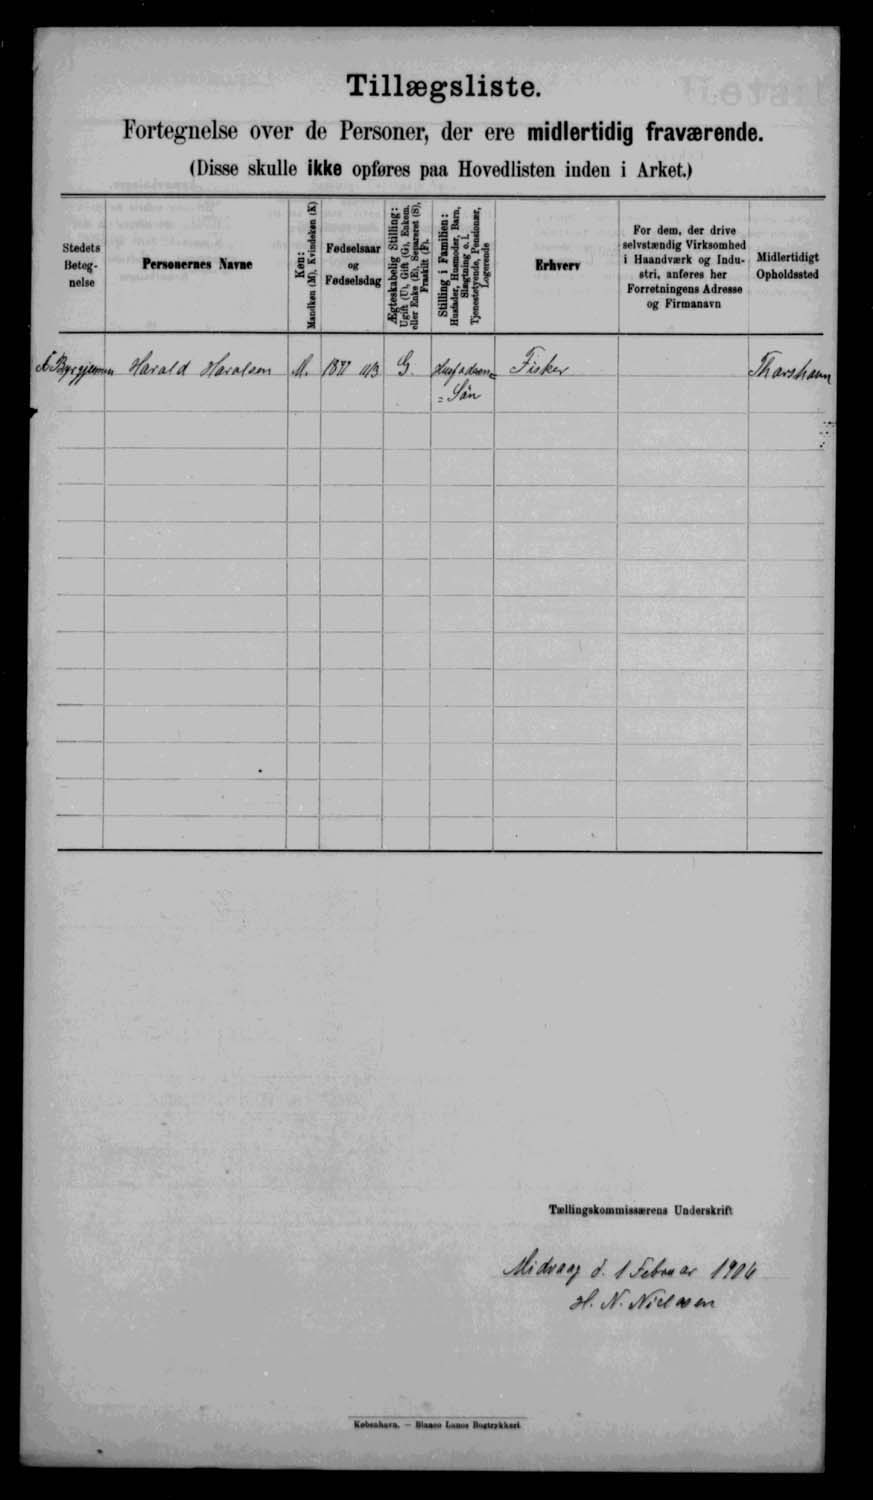 Tillægsliste.
Fortegnelse over de Personer, der ere midlertidig fraværende.
(Disse skulle ikke opføres paa Hovedlisten inden i Arket.)
Stedets
Beteg-
nelse
Personernes Navne
Køn:
Mandkøn (M), Kvindekøn (K)
Fødselsaar
og
Fødselsdag
Ægteskabelig Stilling:
Ugift (U), Gift (G), Enkem.
eller Enke (E), Separeret (S),
Fraskilt (F).
Stilling i Familien:
Husfader, Husmoder, Barn,
Slægtning o. l.
Tjenestetyende, Pensionær,
Logerende
Erhverv
For dem, der drive
selvstændig Virksomhed
i Haandværk og Indu-
stri, anføres her
Forretningens Adresse
og Firmanavn
Midlertidigt
Opholdssted
Harald Haralsen M. 11/3 G. Fisker Thorshavn
= Søn
Tællingskommissærens Underskrift
Midvaag d. 1 Februar 1906
H. N. Nielsen
København. — Bianco Lunos Bogtrykkeri